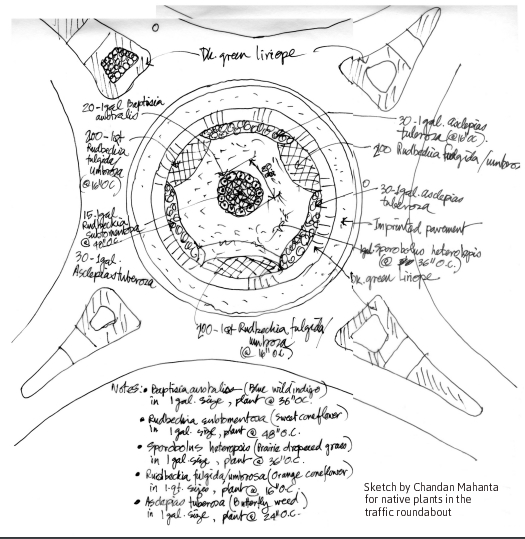 Dk green liriope
20-1gal Baptisia
australis
200-1qt
Rudbeckia
fulgida/
umbrosa
@16"O.C
15-1gal.
Rudbeckia
subtomentosa
@ 48"O.C.
30-1gal.
Asclepias tuberosa
30-1gal. asclepias
tuberosa (@16"OC)
200 Rudbeckia fulgida/umbrosa
30-1gal. asclepias
tuberosa
Imprinted pavement
Sporobolus heterolepis
(@ 36" O.C.)
Dk. green liriope
200-1qt Rudbeckia fulgida/
umbrosa
(@ 16" O.C.)
Notes: • Baptisia australis - (Blue wild indigo)
in 1 gal. size, plant @ 36"OC.
• Rudbeckia subtomentosa (Sweet coneflower)
in 1 gal. size, plant @ 48" O.C.
• Sporobolus heterolepis (Prairie dropseed grass)
in 1 gal. size, plant @ 36"O.C.
• Rudbeckia fulgida/umbrosa (Orange coneflower)
in 1-qt. sizes, plant @ 16"O.C.
• Asclepias tuberosa (Butterfly weed)
in 1 gal. size, plant @ 24"O.C.
Sketch by Chandan Mahanta
for native plants in the
traffic roundabout